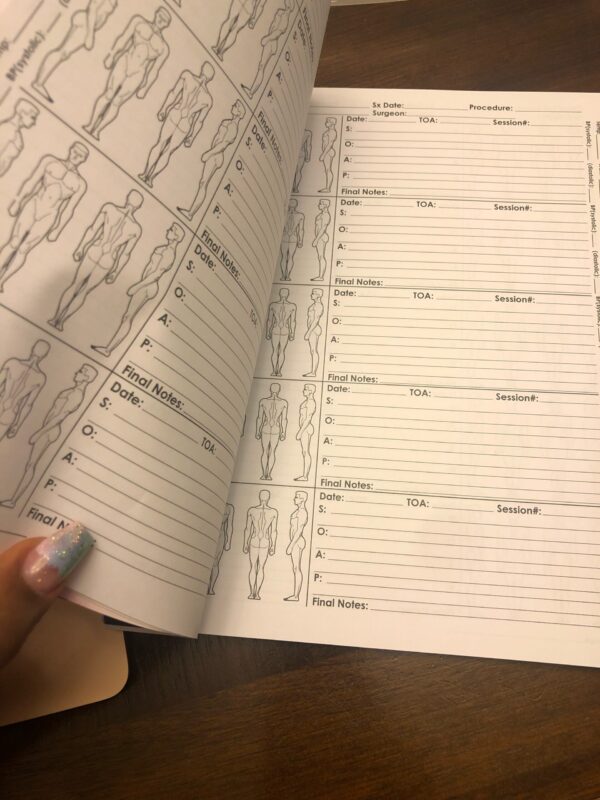 BP(systolic):
O:
A:
P:
Final Notes:
Date:
S:
O:
A:
P:
Final Notes:
Date: TOA:
S:
O:
A:
P:
Final Notes:
Date: TOA:
S:
O:
A:
P:
Final N
Sx Date: Procedure:
Surgeon:
Date: TOA: Session#:
S:
O:
A:
P:
Final Notes:
Date: TOA: Session#:
S:
O:
A:
P:
Final Notes:
Date: TOA: Session#:
S:
O:
A:
P:
Final Notes:
Date: TOA: Session#:
S:
O:
A:
P:
Final Notes:
Date: TOA: Session#:
S:
O:
A:
P:
Final Notes:
BP(systolic): (diastolic): BP(systolic): (diastolic):